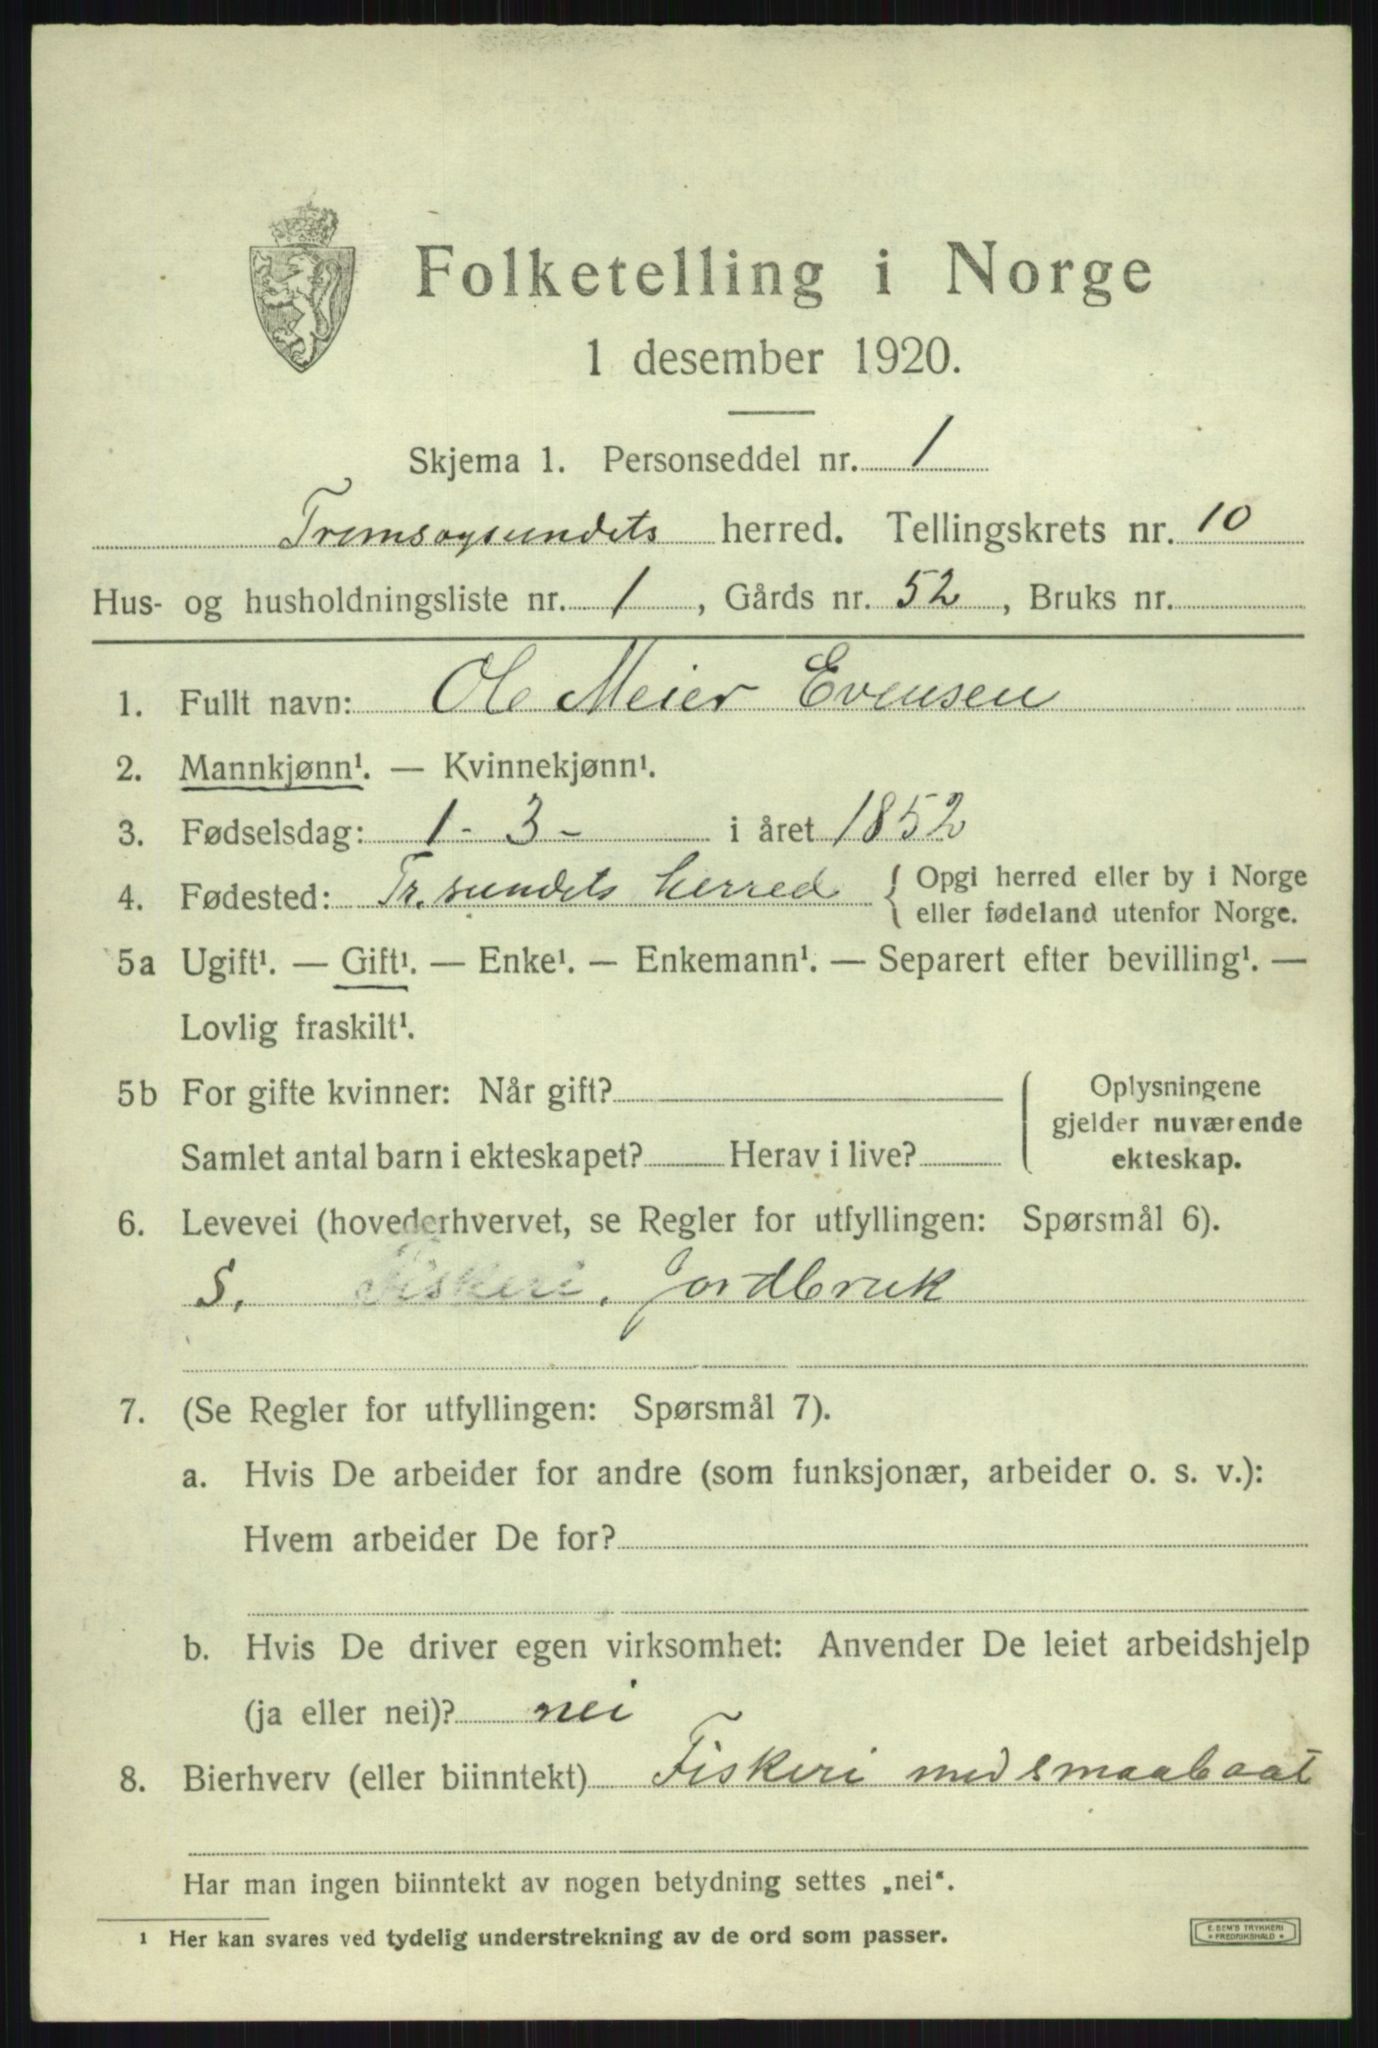 Folketelling i Norge
1 desember 1920.
Skjema 1. Personseddel nr. 1
Tromsøysundets herred. Tellingskrets nr. 10
Hus- og husholdningsliste nr. 1, Gårds nr. 52, Bruks nr.
1. Fullt navn: Ole Meier Evensen
2. Mannkjønn¹. — Kvinnekjønn¹.
3. Fødselsdag: 1 - 3 - i året 1852
4. Fødested: Tr.sundets herred { Opgi herred eller by i Norge
eller fødeland utenfor Norge.
5a Ugift¹. — Gift¹. — Enke¹. — Enkemann¹. — Separert efter bevilling¹. —
Lovlig fraskilt¹.
5b For gifte kvinner: Når gift?
Samlet antal barn i ekteskapet? Herav i live?
Oplysningene
gjelder nuværende
ekteskap.
6. Levevei (hovederhvervet, se Regler for utfyllingen: Spørsmål 6).
S. Fiskeri, Jordbruk
7. (Se Regler for utfyllingen: Spørsmål 7).
a. Hvis De arbeider for andre (som funksjonær, arbeider o. s. v.):
Hvem arbeider De for?
b. Hvis De driver egen virksomhet: Anvender De leiet arbeidshjelp
(ja eller nei)? nei
8. Bierhverv (eller biinntekt) Fiskeri med smaabaat
Har man ingen biinntekt av nogen betydning settes „nei“.
¹ Her kan svares ved tydelig understrekning av de ord som passer.
E. SEM'S TRYKKERI
* FREDRIKSHALD *